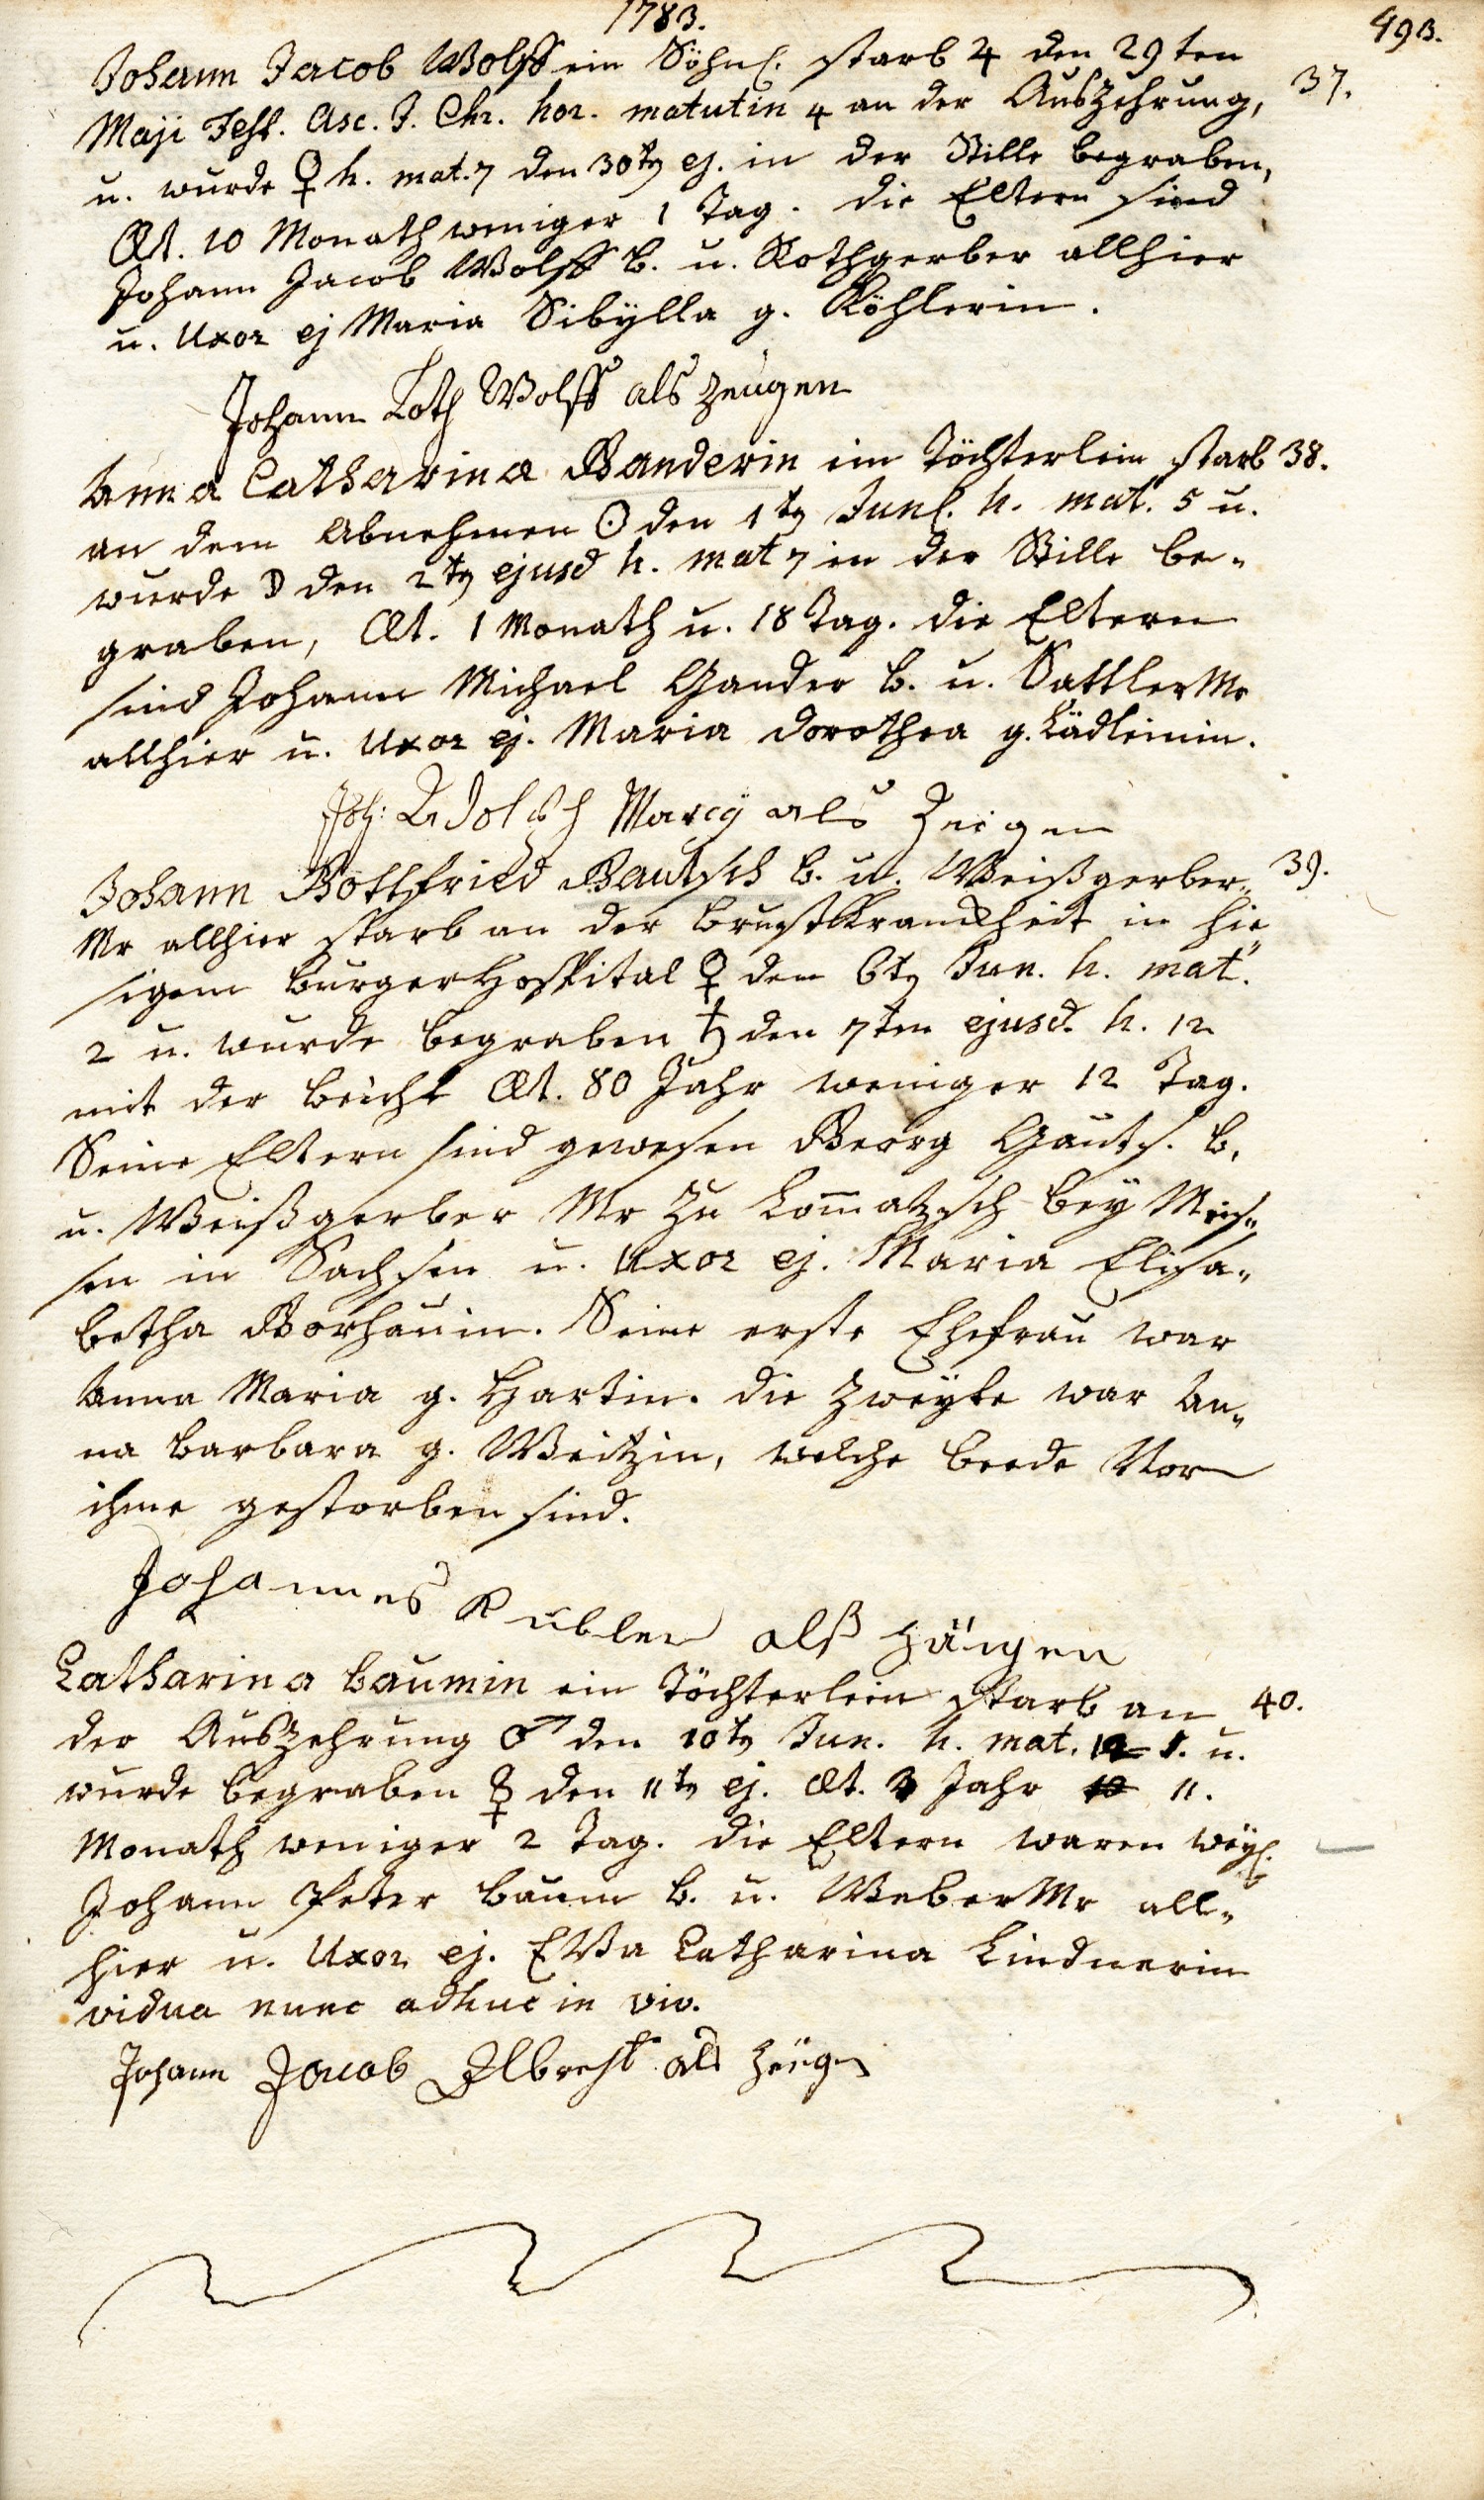 1783.
493.
Johann Jacob Wolff ein Söhnl. starb ♃ den 29ten
Maji Fest. Asc. J. Chr. hor. matutin 4 an der Auszehrung, 37.
u. wurde ♀ h. mat. 7 den 30tn ej. in der Stille begraben,
Æt. 10 Monath weniger 1 Tag. die Eltern sind
Johann Jacob Wolff b. u. Rothgerber allhier
u. Uxor ej Maria Sibÿlla g. Köhlerin.
Johann Loth Wolff als zeugen
Anna Catharina Ganderin ein Töchterlein starb 38.
an dem Abnehmen ☉ den 1tn Junl. h. mat. 5 u.
wurde ☽ den 2tn ejusd h. mat 7 in der Stille be-
graben, Æt. 1 Monath u. 18 Tag. die Eltern
sind Johann Michael Gander b. u. Sattler Mr
allhier u. Uxor ej. Maria Dorothea g. Lädleinin.
Joh: Adolph Marcÿ als Zeigen
Johann Gottfried Gautsch b. u. Weißgerber- 39.
Mr allhier starb an der Brustkranckheit in hie-
sigem Burger Hospital ♀ den 6tn Jun. h. mat.
2 u. wurde begraben ♄ den 7ten ejusd. h. 12
mit der Leicht Æt. 80 Jahr weniger 12 Tag.
Seine Eltern sind gewesen Georg Gautsch. b.
u. Weißgerber Mr zu Lom̄atzsch beÿ Meis-
sen in Sachsen u. Uxor ej. Maria Elisa-
betha Borhauin. Seine erste Ehefrau war
Anna Maria g. Hartin. die zweÿte war An-
na Barbara g. Weitzin, welche beede Vor
ihme gestorben sind.
Johannes Kübler alß zäugen
Catharina Baumin ein Töchterlein starb an 40.
der Auszehrung ♂ den 10tn Jun. h. mat. 12 1. u.
wurde begraben ☿ den 11tn ej. Æt. 3 Jahr 10 11.
Monath weniger 2 Tag. die Eltern waren weÿl.
Johann Peter Baum b. u. Weber Mr all-
hier u. Uxor ej. EVa Catharina Lindnerin
vidua nunc adhuc in viv.
Johann Jacob Albrecht als zeugen